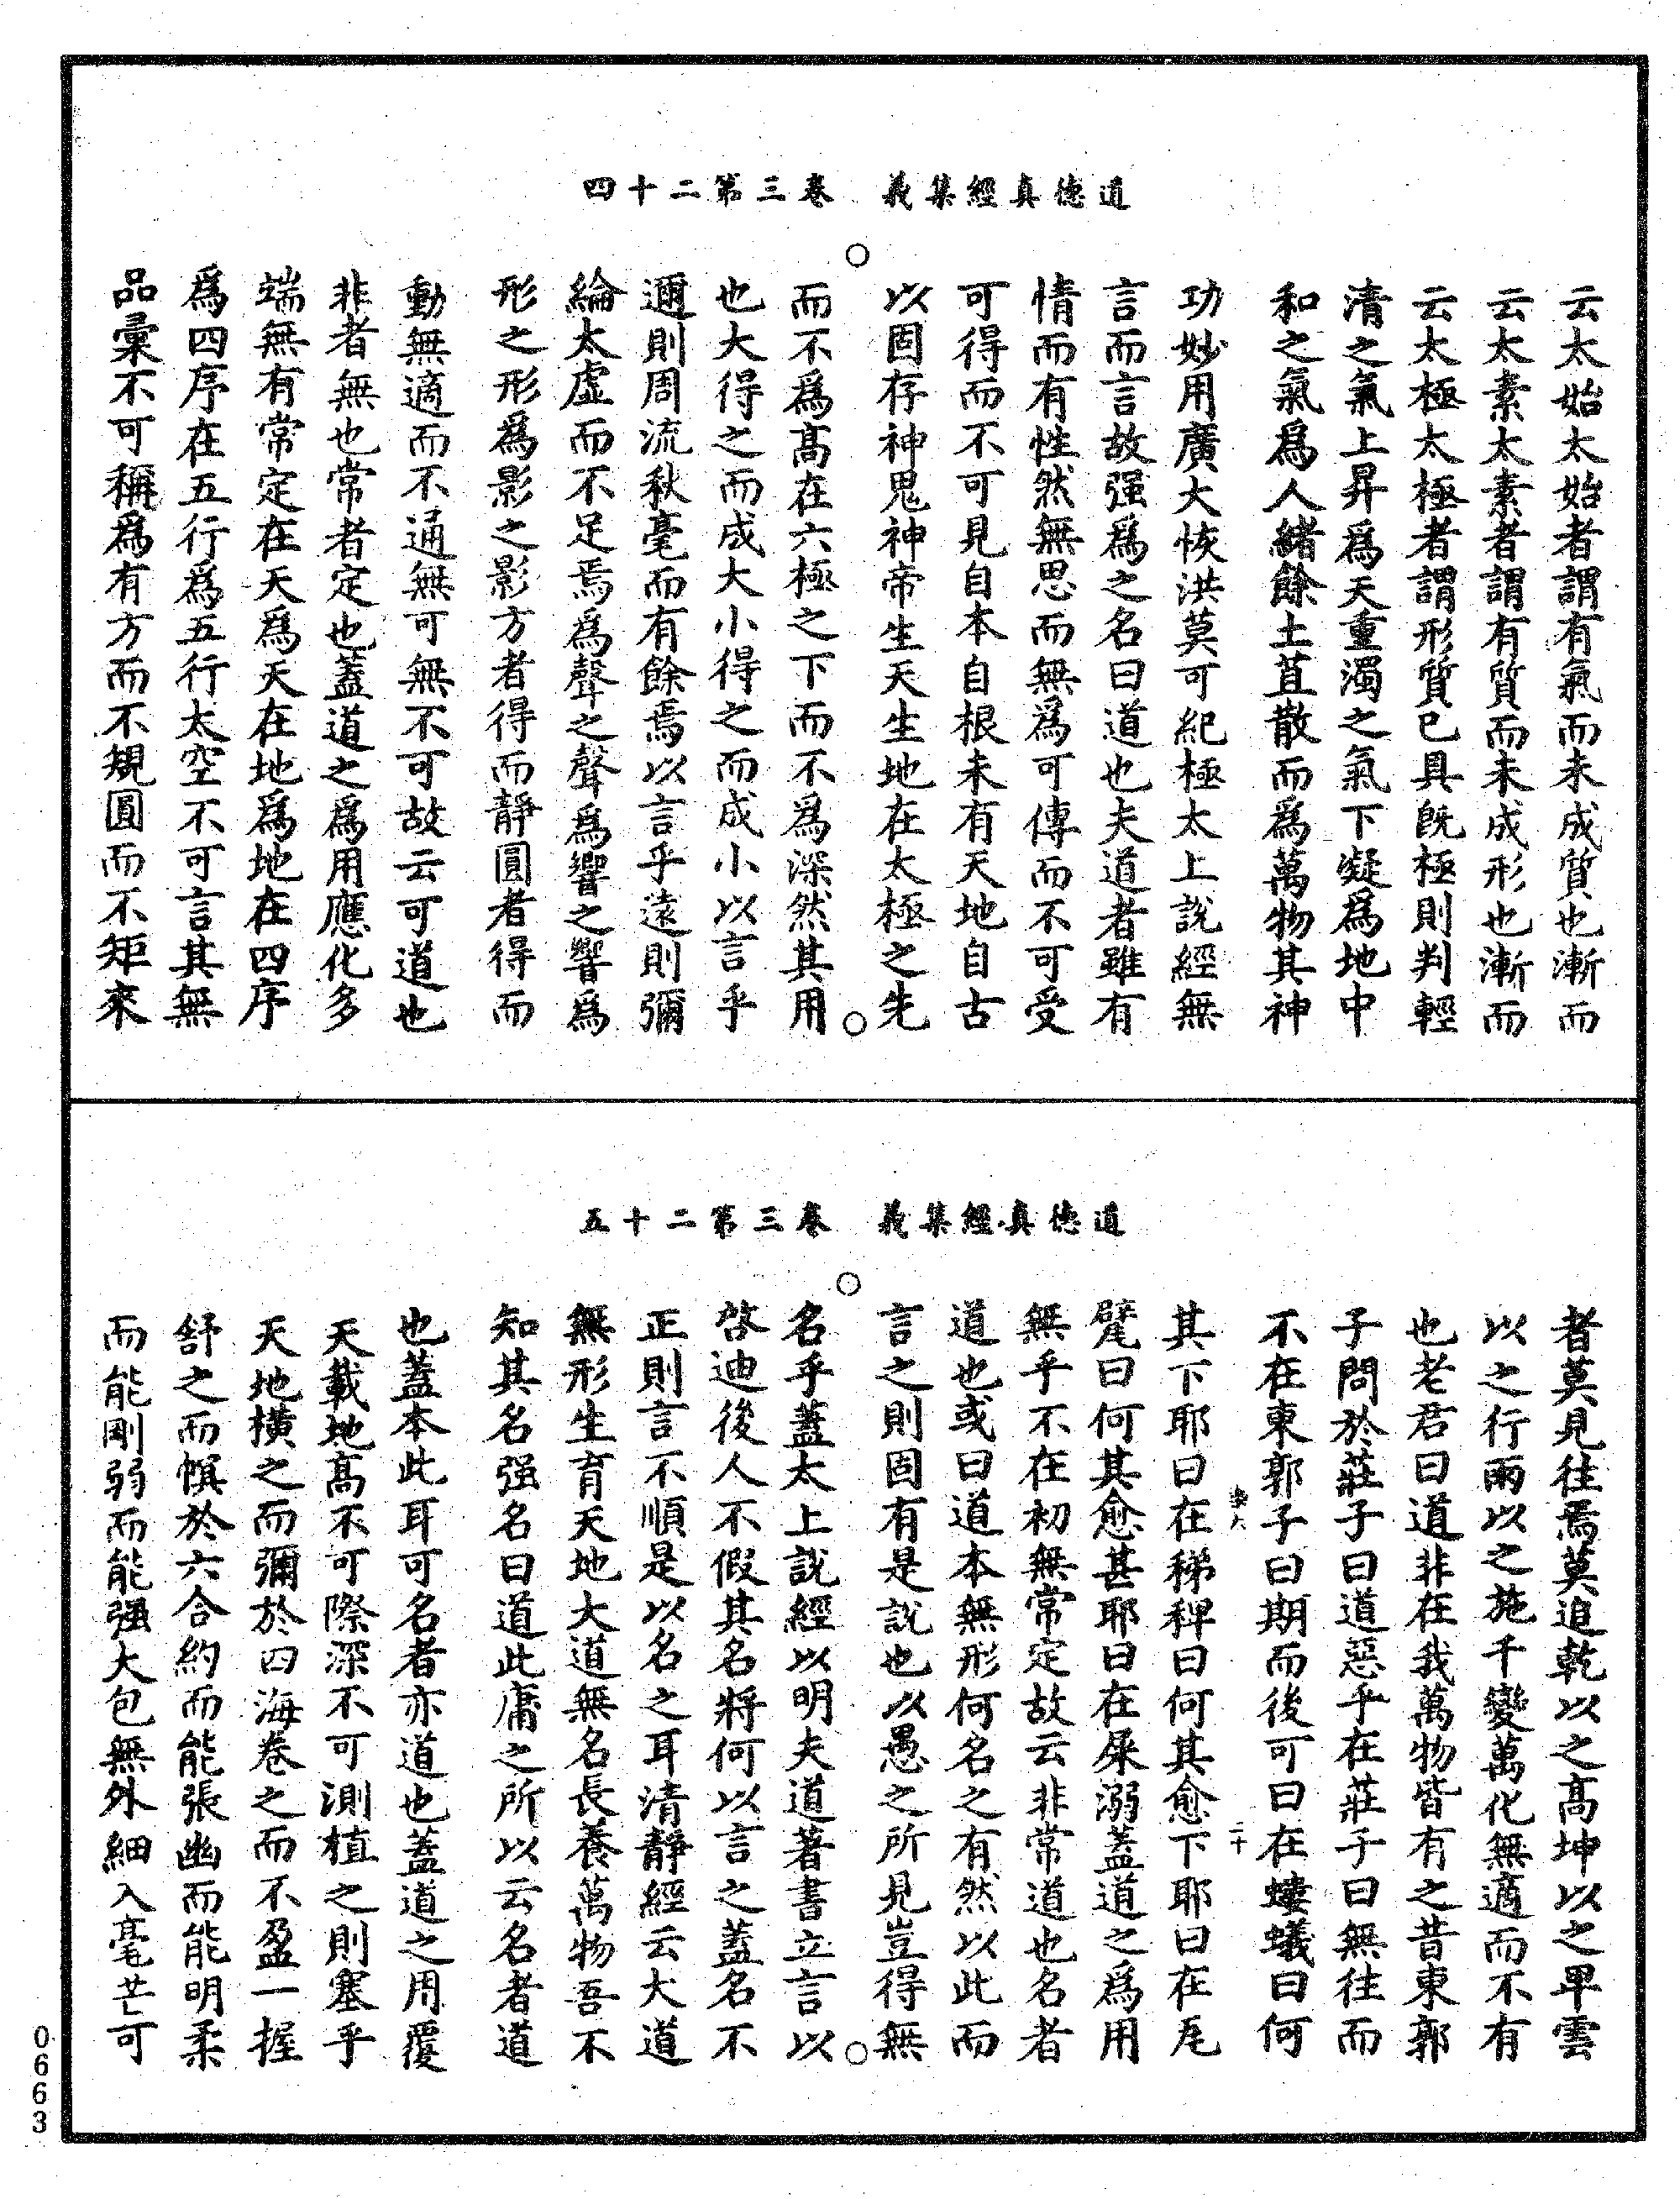 道德真經集義　卷三第二十四
云太始太始者謂有氣而未成質也漸而
云太素太素者謂有質而未成形也漸而
云太極太極者謂形質已具旣極則判輕
清之氣上昇爲天重濁之氣下凝爲地中
和之氣爲人緒餘土苴散而爲萬物其神
功妙用廣大恢洪莫可紀極太上說經無
言而言故强爲之名曰道也夫道者雖有
情而有性然無思而無爲可傳而不可受
可得而不可見自本自根未有天地自古
以固存神鬼神帝生天生地在太極之先
而不爲高在六極之下而不爲深然其用
也大得之而成大小得之而成小以言乎
邇則周流秋毫而有餘焉以言乎遠則彌
綸太虛而不足焉爲聲之聲爲響之響爲
形之形爲影之影方者得而靜圓者得而
動無適而不通無可無不可故云可道也
非者無也常者定也蓋道之爲用應化多
端無有常定在天爲天在地爲地在四序
爲四序在五行爲五行太空不可言其無
品彙不可稱爲有方而不規圓而不矩來
道德真經集義　卷三第二十五
者莫見往焉莫追乾以之高坤以之卑雲
以之行雨以之施千變萬化無適而不有
也老君曰道非在我萬物皆有之昔東郭
子問於莊子曰道惡乎在莊子曰無往而
不在東郭子曰期而後可曰在螻蟻曰何
二十
其下耶曰在稊稗曰何其愈下耶曰在瓦
甓曰何其愈甚耶曰在屎溺蓋道之爲用
無乎不在初無常定故云非常道也名者
道也或曰道本無形何名之有然以此而
言之則固有是說也以愚之所見豈得無
名乎蓋太上說經以明夫道著書立言以
啓迪後人不假其名將何以言之蓋名不
正則言不順是以名之耳清靜經云大道
無形生育天地大道無名長養萬物吾不
知其名强名曰道此庸之所以云名者道
也蓋本此耳可名者亦道也蓋道之用覆
天載地高不可際深不可測植之則塞乎
天地橫之而彌於四海卷之而不盈一握
舒之而幎於六合約而能張幽而能明柔
而能剛弱而能强大包無外細入毫芒可
0663